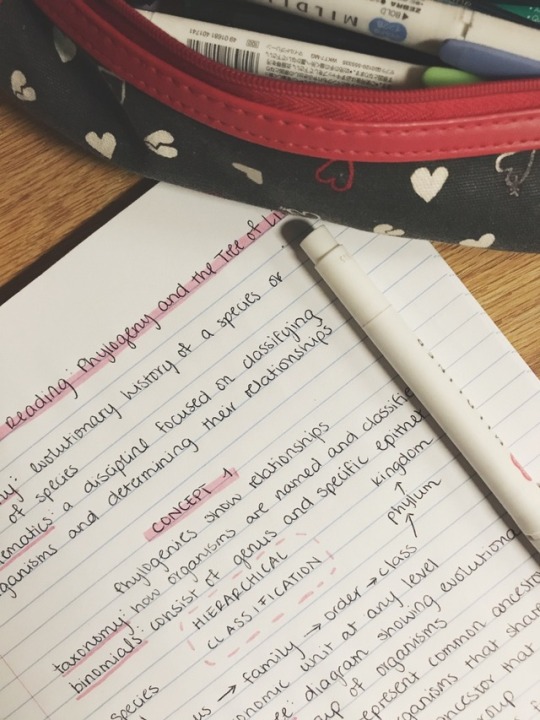 ZEBRA
BOLD
MILDLI
WKT7-MG
49 01681 401741
Reading: Phylogeny and the Tree of Li
ny: evolutionary history of a species or
of species
ematics: a discipline focused on classifying
ganisms and determining their relationships
CONCEPT 1
Phylogenies show relationships
taxonomy: how organisms are named and classifie
binomials: consist of genus and specific epithe
HIERARCHICAL
CLASSIFICATION
kingdom
↑
phylum
↑
species
us → family → order → class
onomic unit at any level
ee: diagram showing evolutiona
up of organisms
epresent common ancesto
ganisms that share
ancestor that
oup